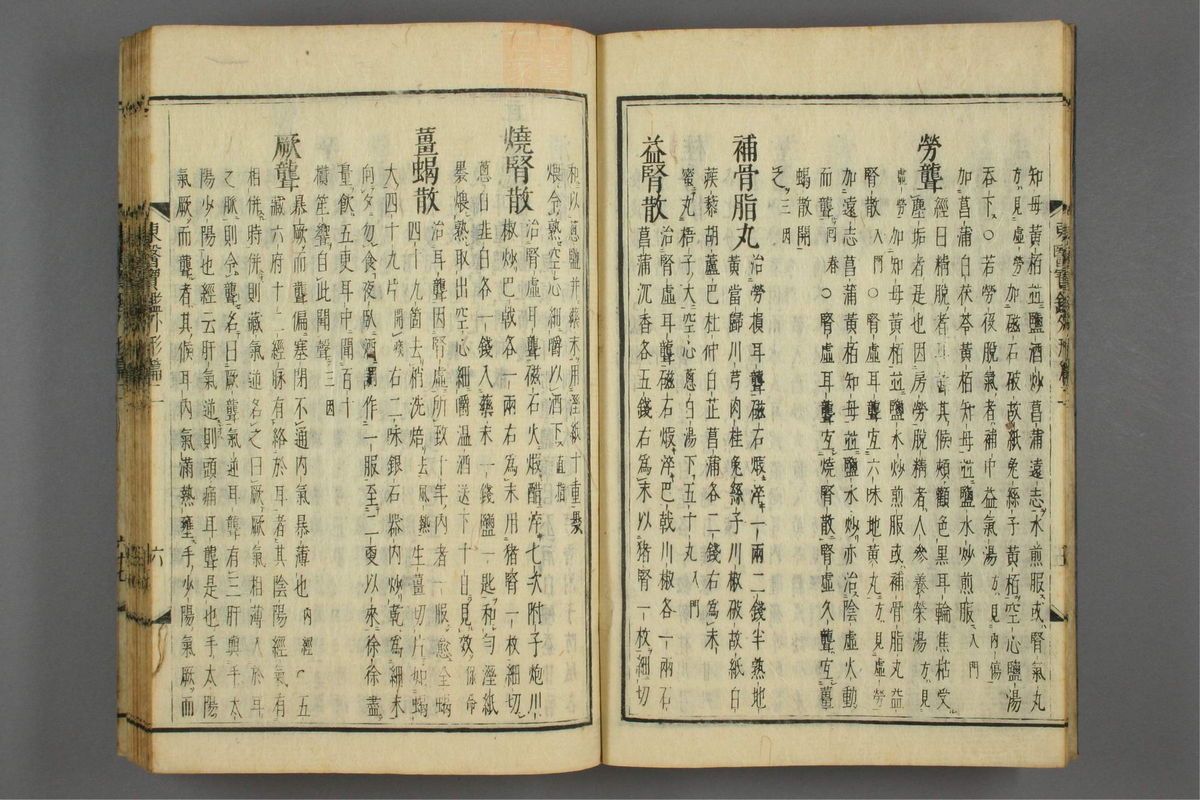 知母黃栢並鹽酒炒菖蒲遠志水煎服或腎氣丸
方見虛勞加磁石破故紙兔絲子黃栢空心鹽湯
吞下○若勞役脫氣者補中益氣湯方見內傷
加菖蒲白茯苓黃栢知母並鹽水炒煎服入門
勞聾
經曰精脫者耳聾其候頰顴色黑耳輪焦枯受
塵垢者是也因房勞脫精者人參養榮湯方見
虛勞加知母黃栢並鹽水炒煎服或補骨脂丸益
腎散入門○腎虛耳聾宜六味地黃丸方見虛勞
加遠志菖蒲黃栢知母並鹽水炒亦治陰虛火動
而聾回春○腎虛耳聾宜燒腎散腎虛久聾宜薑
蝎散開
之三因
補骨脂丸
治勞損耳聾磁石煆淬一兩二錢半熟地
黃當歸川芎肉桂兔絲子川椒破故紙白
蒺藜胡蘆巴杜仲白芷菖蒲各二錢右爲末
蜜丸梧子大空心葱白湯下五十丸入門
益腎散
治腎虛耳聾磁石煆淬巴戟川椒各一兩石
菖蒲沉香各五錢右爲末以猪腎一枚細切
和以葱鹽幷藥末用濕紙十重裹
煨令熟空心細嚼以酒下直指
燒腎散
治腎虛耳聾磁石火煆醋淬七次附子炮川
椒炒巴戟各一兩右爲末用猪腎一枚細切
葱白韭白各一錢入藥末一錢鹽一匙和勻濕紙
裹煨熟取出空心細嚼溫酒送下十日見效
薑蝎散
治耳聾因腎虛所致十年內者一服愈全蝎
四十九箇去梢洗焙去風熱生薑切片如蝎
大四十九片右二味銀石器內炒乾爲細末
向夕勿食夜臥酒調作一服至二更以來徐徐盡
量飮五更耳中聞百十
欑笙響自此聞聲三因
厥聾
暴厥而聾偏塞閉不通內氣暴薄也內經○五
藏六府十二經脉有絡於耳者其陰陽經氣有
相倂時倂則藏氣逆名之曰厥厥氣相薄入於耳
之脉則令聾名曰厥聾氣逆耳聾有三肝與手太
陽少陽也經云肝氣逆則頭痛耳聾是也手太陽
氣厥而聾者其候耳內氣滿熱壅手少陽氣厥而
東醫寶鑑外形篇二
六
東醫寶鑑外形篇